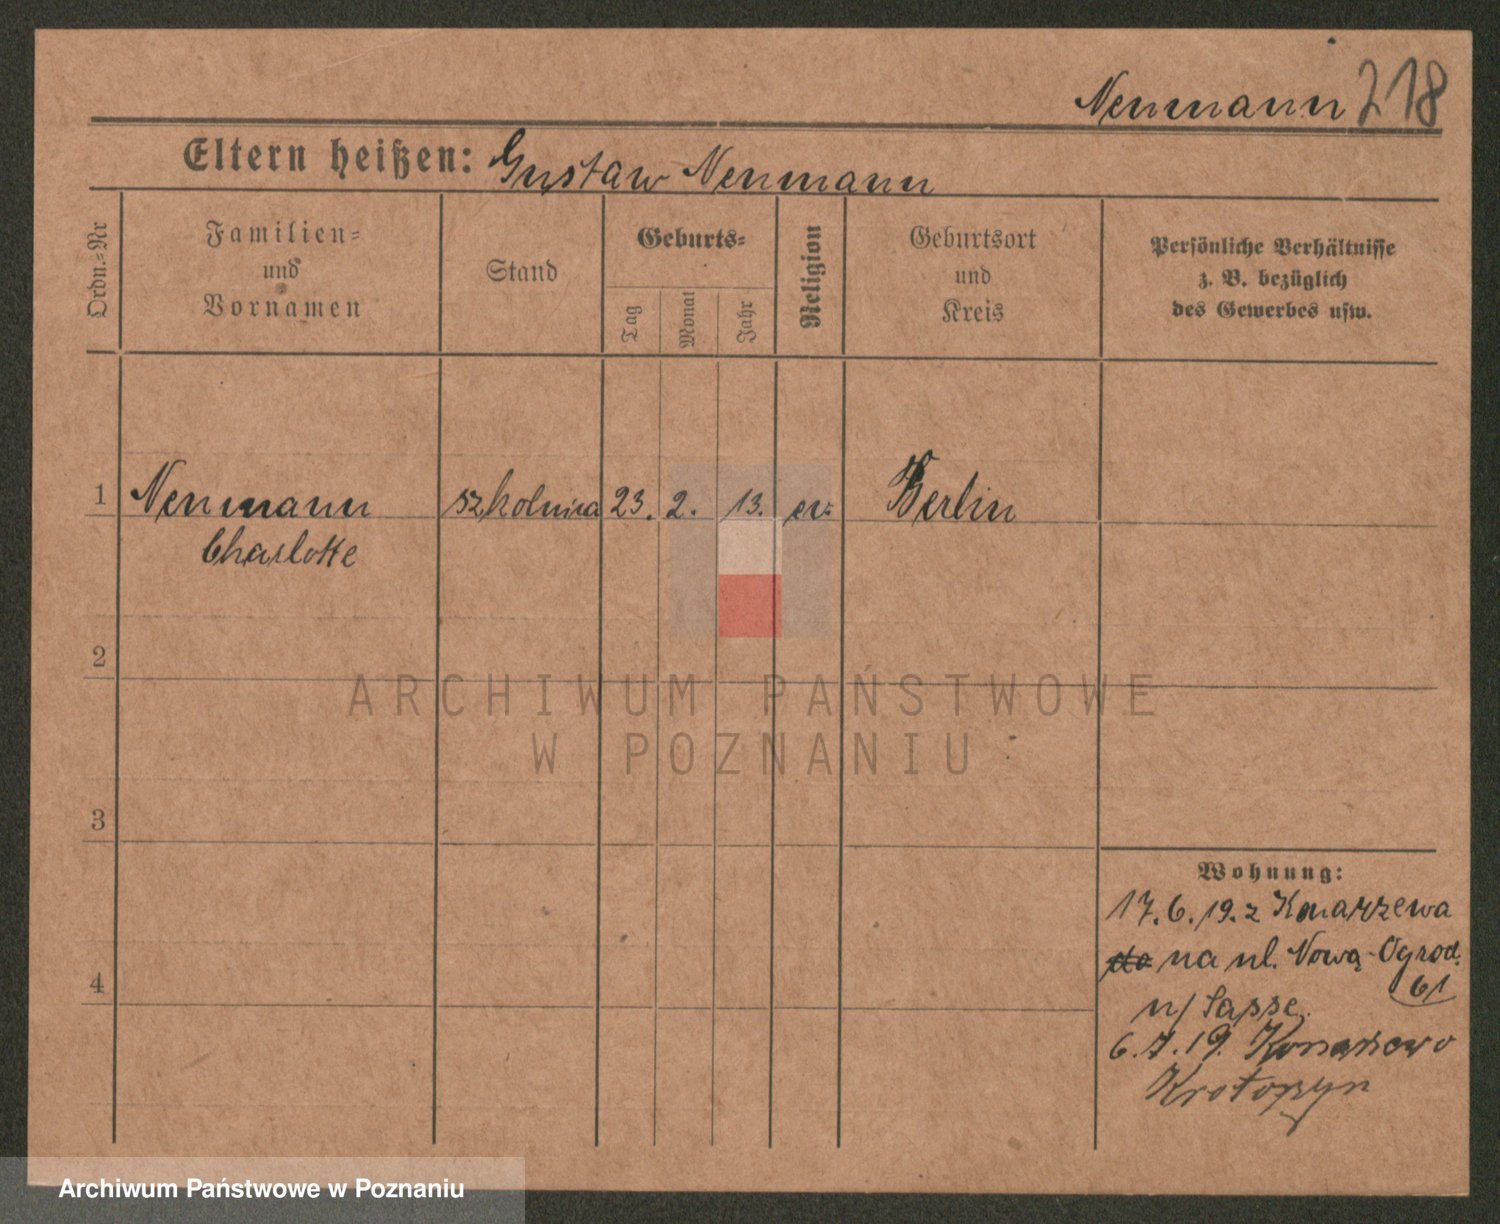 Neumann 218
Eltern heißen: Gustaw Neumann
Ordn.=Nr
Familien=
und
Vornamen
Stand
Geburts=
Tag
Monat
Jahr
Religion
Geburtsort
und
Kreis
Persönliche Verhältnisse
z. B. bezüglich
des Gewerbes usw.
1 Neumann szkolnica 23. 2. 13. ew. Berlin
Charlotte
2
ARCHIWUM PAŃSTWOWE
W POZNANIU
3
Wohnung:
17.6.19. z Konarzewa
do na ul. Nową-Ogrod.
61
4
u/ Sasse.
6.7.19. Konarzewo
Krotoszyn
Archiwum Państwowe w Poznaniu